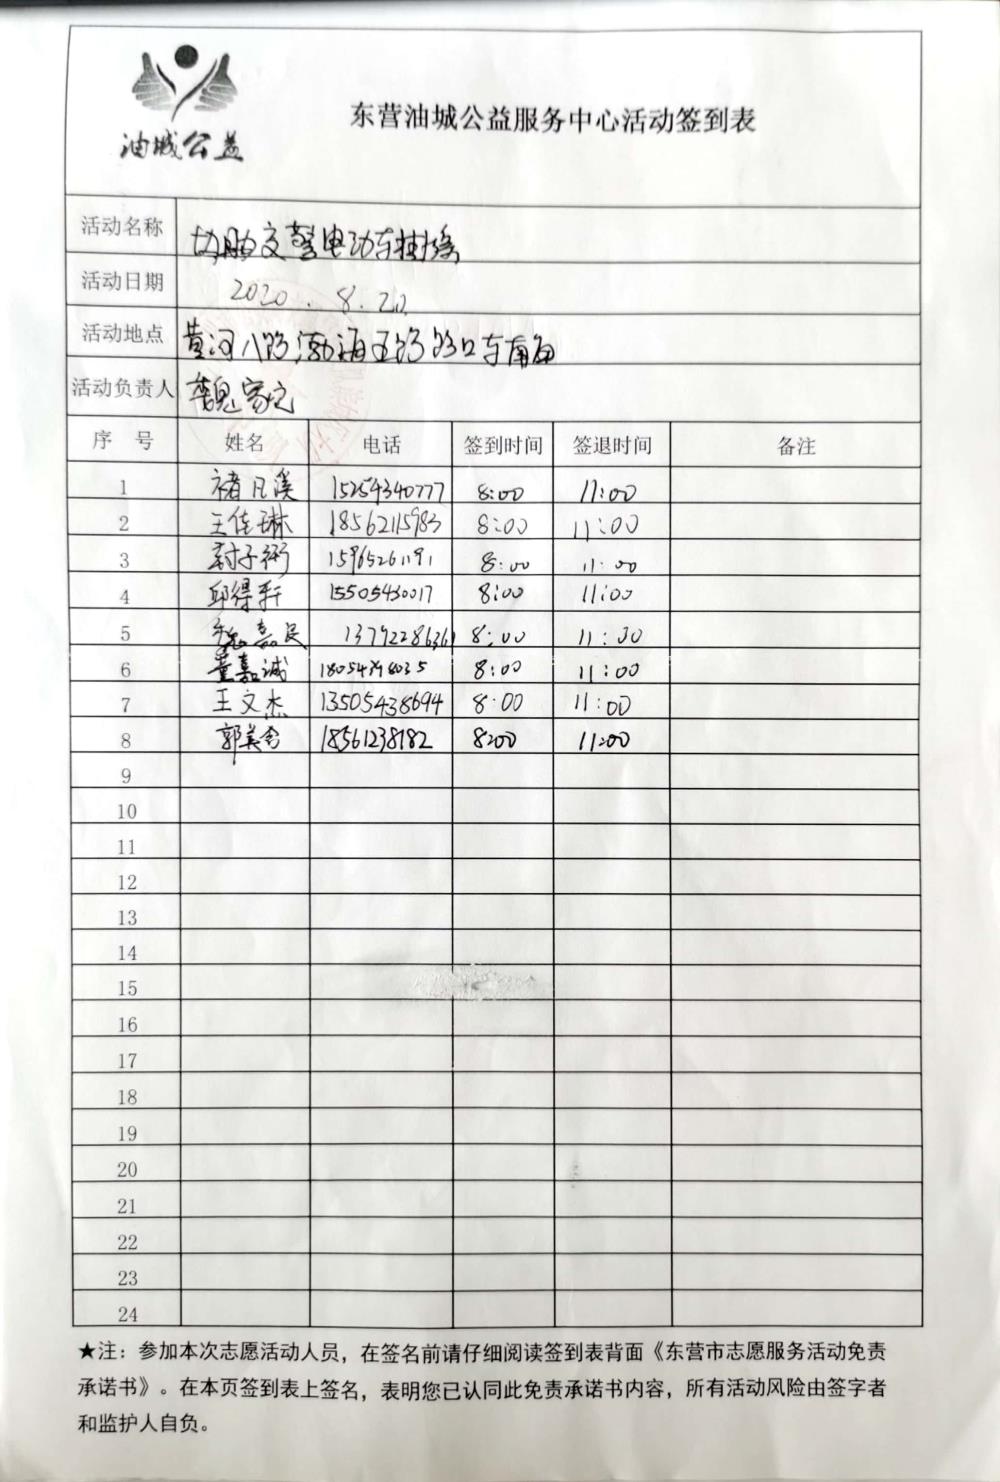 油城公益
东营油城公益服务中心活动签到表
活动名称 协助交警电动车挂牌
活动日期 2020.8.20
活动地点 黄河八路渤海五路路口东南角
活动负责人 魏家
序号 姓名 电话 签到时间 签退时间 备注
1 褚凡溪 15254340777 8:00 11:00
2 王佳琳 18562115983 8:00 11:00
3 封子衔 15965261191 8:00 11:00
4 邱得轩 15505430017 8:00 11:00
5 魏嘉民 13792286361 8:00 11:30
6 董嘉诚 8:00 11:00
7 王文杰 13505438694 8:00 11:00
8 郭美含 18561238182 8:00 11:00
9
10
11
12
13
14
15
16
17
18
19
20
21
22
23
24
★注：参加本次志愿活动人员，在签名前请仔细阅读签到表背面《东营市志愿服务活动免责
承诺书》。在本页签到表上签名，表明您已认同此免责承诺书内容，所有活动风险由签字者
和监护人自负。